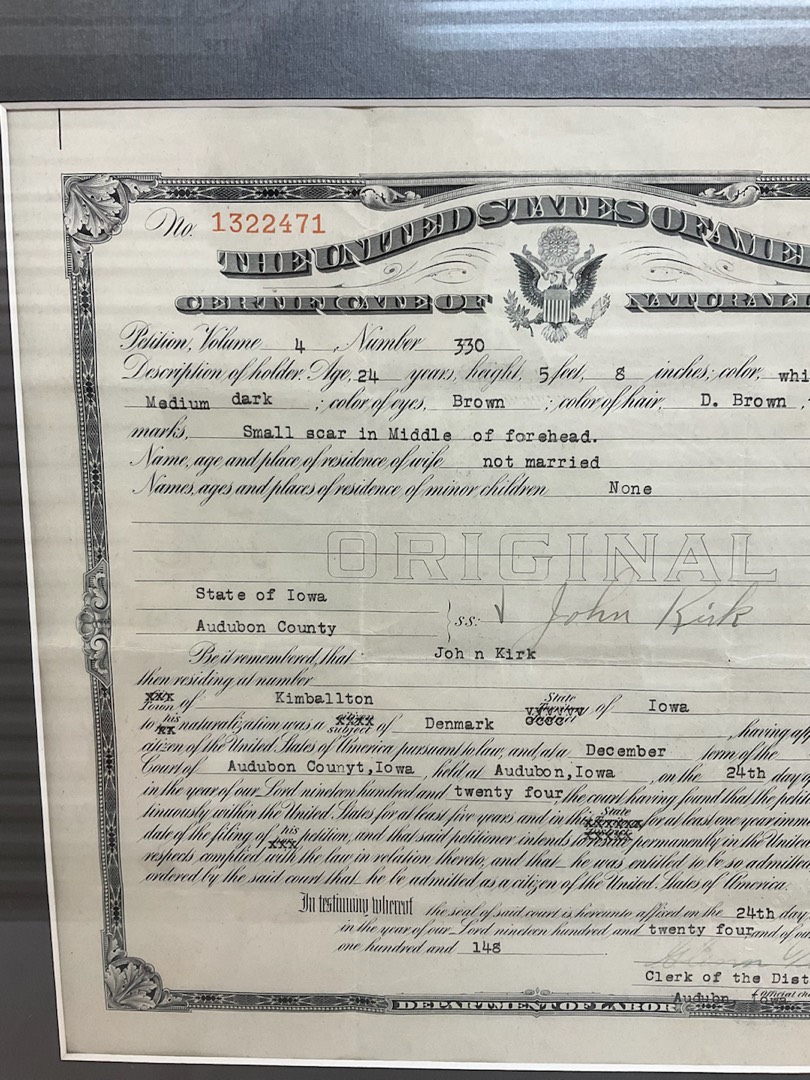 No. 1322471
THE UNITED STATES OF AME
CERTIFICATE OF NATURALI
Petition, Volume 4 , Number 330
Description of holder: Age, 24 years; height, 5 feet, 8 inches; color, whi
Medium dark ; color of eyes, Brown ; color of hair, D. Brown ,
marks, Small scar in Middle of forehead.
Name, age and place of residence of wife not married
Names, ages and places of residence of minor children None
ORIGINAL
State of Iowa
Audubon County
ss: John Kirk
Be it remembered, that Joh n Kirk
then residing at number
Town of Kimballton State of Iowa
to his naturalization was a subject of Denmark , having app
citizen of the United States of America pursuant to law, and at a December term of the
Court of Audubon Counyt,Iowa , held at Audubon,Iowa , on the 24th day o
in the year of our Lord nineteen hundred and twenty four, the court having found that the petiti
tinuously within the United States for at least five years and in this State for at least one year imm
date of the filing of his petition, and that said petitioner intends to reside permanently in the United
respects complied with the law in relation thereto, and that he was entitled to be so admitted
ordered by the said court that he be admitted as a citizen of the United States of America.
In testimony whereof the seal of said court is hereunto affixed on the 24th day
in the year of our Lord nineteen hundred and twenty four, and of ou
one hundred and 148
Clerk of the Dist
Audubn, Iowa
DEPARTMENT OF LABOR